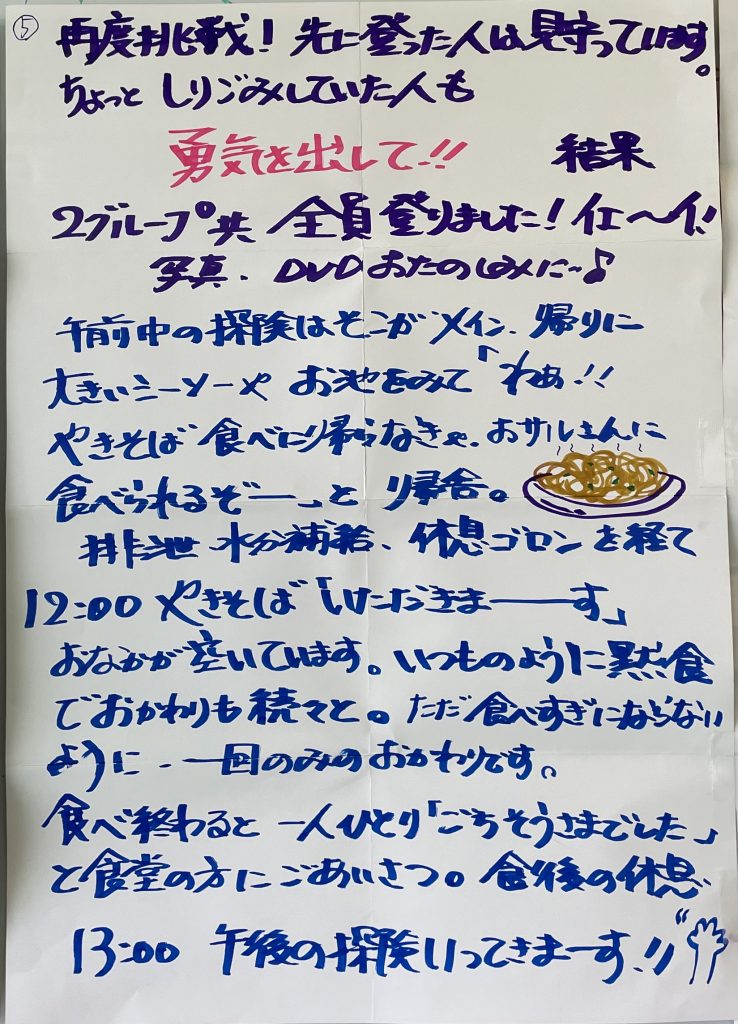 ⑤ 再度挑戦！先に登った人は見守っています。
ちょっと しりごみしていた人も
勇気を出して‥!! 結果
2グループ共 全員登りました！イエ〜イ!!
写真、DVDおたのしみに…♪
午前中の探険はそこがメイン、帰りに
大きいシーソーや お池をみて「わぁ!!
やきそば 食べに帰らなきゃ、おサルさんに
食べられるぞ――」と 帰舎。
排泄 水分補給、休息ゴロン を経て
12:00 やきそば「いただきま――す」
おなかが 空いています。いつものように黙食
でおかわりも 続々と。ただ 食べすぎにならない
ように、一回のみのおかわりです。
食べ終わると 一人ひとり「ごちそうさまでした」
と食堂の方にごあいさつ。食後の休息
13:00 午後の探険いってきまーす!!